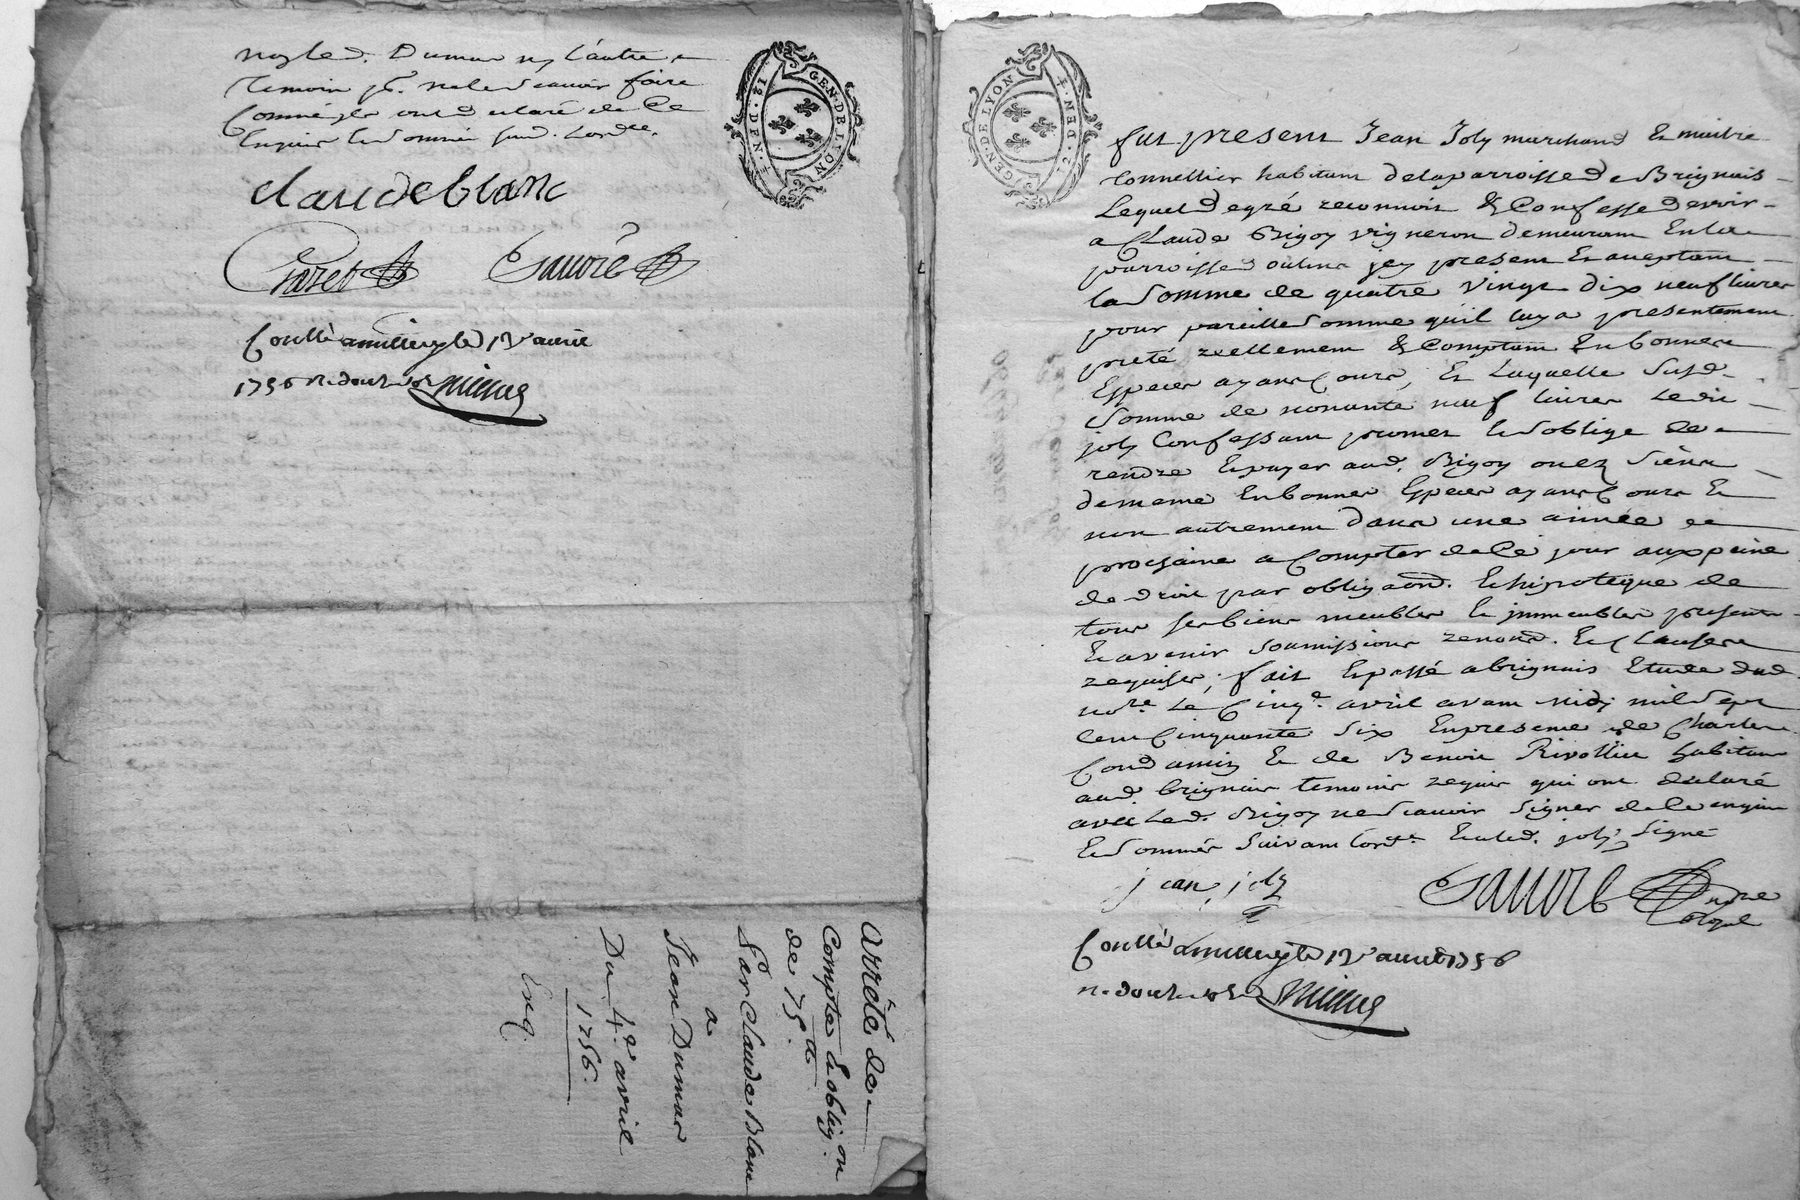 led. Dumas ny l'autre
Temoin pr. ne le scavoir faire
Comme ils ont declaré de ce
Enquis et sommés suiv. Lordce.
claudeblanc
Sauvré
Conllé a millery le 12e avril
1756 r. douze sols
arrêté de
Compte & oblig.on
de 75.
Par Claude Blanc
a
Jean Dumas
Du 4e avril
1756.
Exq.
GEN. DE LYON
12. DEN. 4
GEN. DE LYON
12. DEN. 4
fut present Jean Joly marchand Et maitre
tonnellier habitant de la parroisse de Brignais
Lequel de gré reconnoit & Confesse devoir
a Claude Bigoy vigneron demeurant En la
parroisse d'oulins jcy present Et acceptant
la somme de quatre vingt dix neuf livres
pour pareille somme qu'il luy a presentement
preté reellement & Comptant En bonnes
Especes ayant Cours, Et Laquelle susd.
somme de nonante neuf livres Ledit
joly Confessant promet Et s'oblige de
rendre Et payer aud. Bigoy ou ez siens
de meme En bonnes Especes ayant Cours Et
non autrement dans une année
prochaine a Compter de Ce jour aux peine
de droit par obligaon. Et hipoteque de
tous ses biens meubles Et immeubles presents
Et avenir soumissions renond. Et Clauses
requises, fait Et passé a brignais Etude dud.
notre. Le Cinqe. avril avant midy mil sept
Cent Cinquante six En presence de Charles
Condamin Et de Benoit Rivollier habitans
aud. brignais temoins requis qui ont declaré
avec led. Bigoy ne scavoir signer de Ce enquis
Et sommés suivant lord.ce Et a led. joly signé
jean joly
Sauvré notre
royal
Conllé a millery le 12e avril 1756
r. douze sols